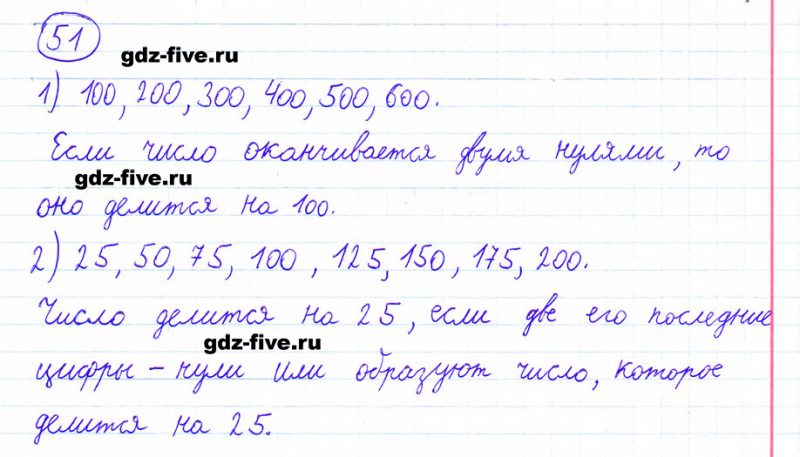 51
gdz-five.ru
1) 100, 200, 300, 400, 500, 600.
Если число оканчивается двумя нулями, то
gdz-five.ru
оно делится на 100.
2) 25, 50, 75, 100, 125, 150, 175, 200.
Число делится на 25, если две его последние
gdz-five.ru
цифры - нули или образуют число, которое
делится на 25.